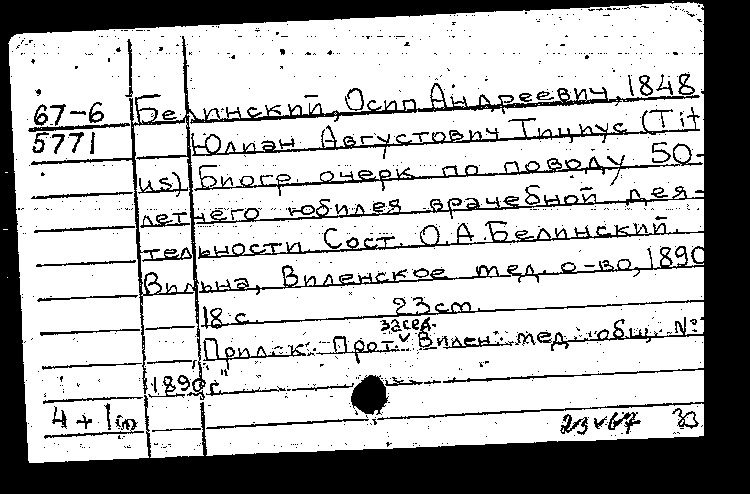 67-6 Белинский, Осип Андреевич, 1848.
5771 Юлиан Августович Тициус (Tit
us) Биогр. очерк по поводу 50-
летнего юбилея врачебной дея-
тельности. Сост. О.А. Белинский.
Вильна, Виленское мед. о-во, 1890
18 с. 23 см.
засед.
"Прилож. Прот. Вилен. мед. общ. №
1890 г."
4 + 1
23 V 67